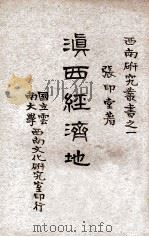 西南硏究叢書之一
張印堂著
滇西經濟地
國立雲
南大學
西南文化硏究室印行